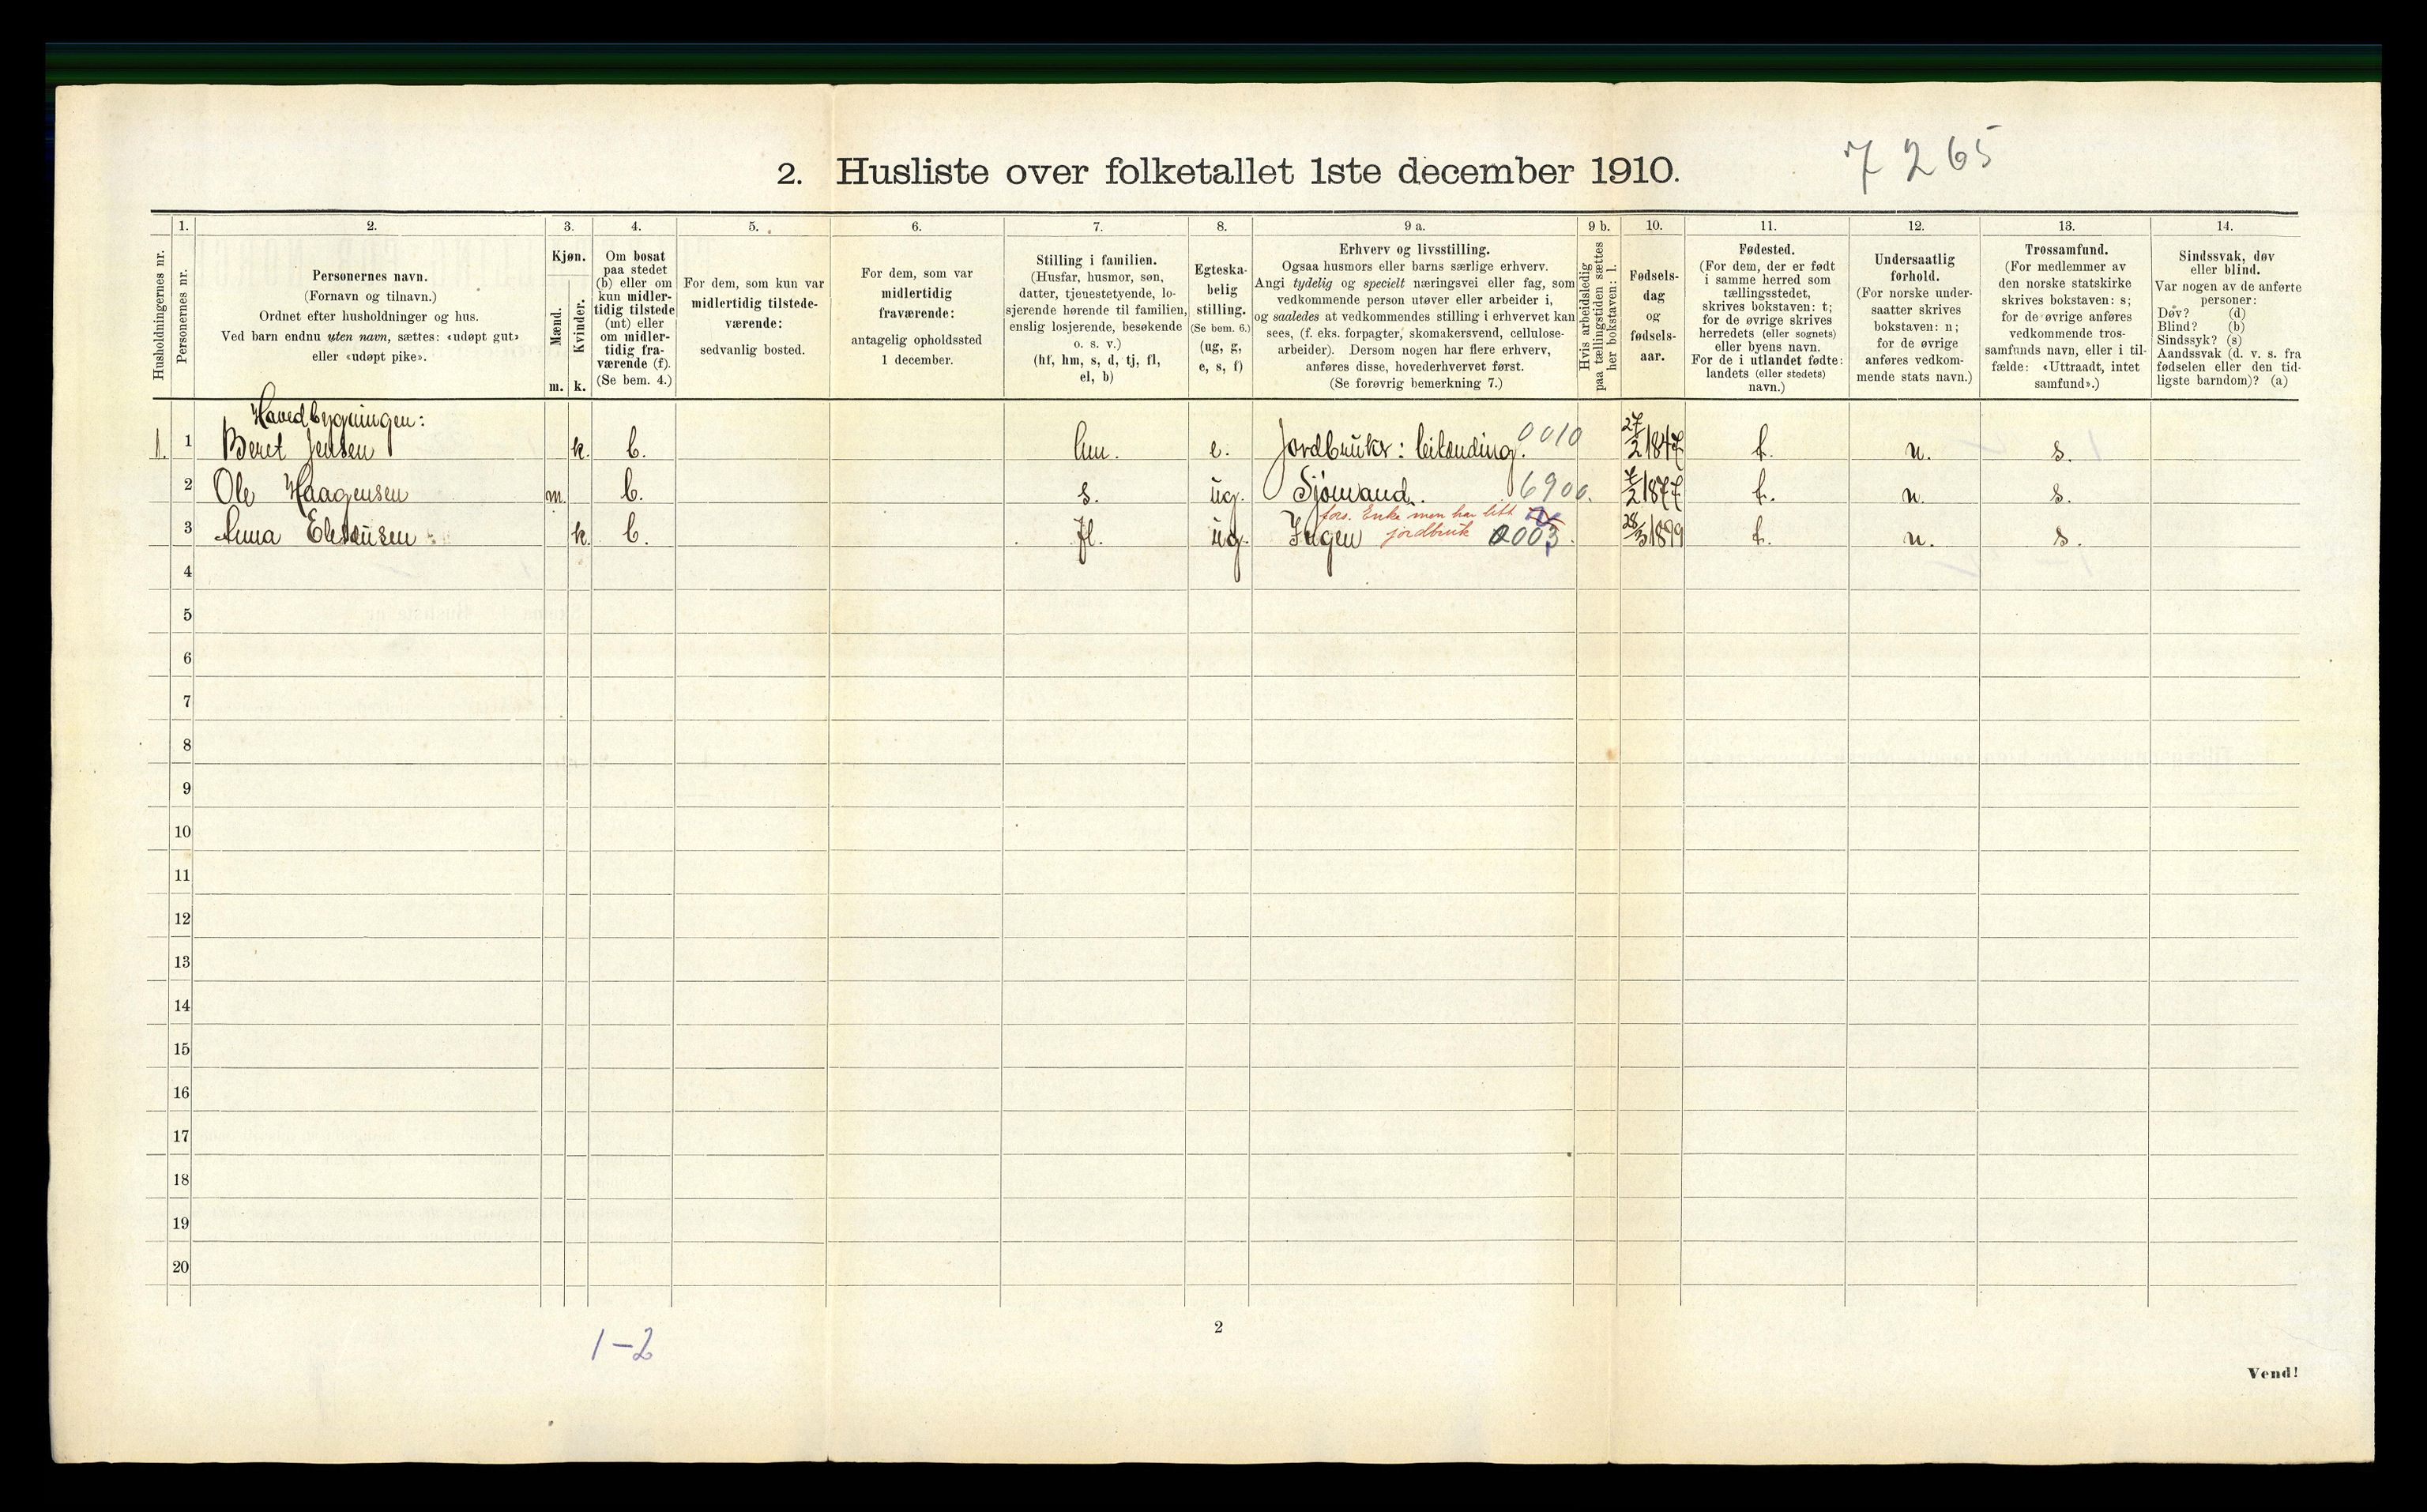 2. Husliste over folketallet 1ste december 1910.
7 265
Husholdningernes nr.
1.
Personernes nr.
2.
Personernes navn.
(Fornavn og tilnavn.)
Ordnet efter husholdninger og hus.
Ved barn endnu uten navn, sættes: «udøpt gut»
eller «udøpt pike».
3.
Kjøn.
Mænd.
Kvinder.
m. k.
4.
Om bosat
paa stedet
(b) eller om
kun midler-
tidig tilstede
(mt) eller
om midler-
tidig fra-
værende (f).
(Se bem. 4.)
5.
For dem, som kun var
midlertidig tilstede-
værende:
sedvanlig bosted.
6.
For dem, som var
midlertidig
fraværende:
antagelig opholdssted
1 december.
7.
Stilling i familien.
(Husfar, husmor, søn,
datter, tjenestetyende, lo-
sjerende hørende til familien,
enslig losjerende, besøkende
o. s. v.)
(hf, hm, s, d, tj, fl,
el, b)
8.
Egteska-
belig
stilling.
(Se bem. 6.)
(ug, g,
e, s, f)
9 a.
Erhverv og livsstilling.
Ogsaa husmors eller barns særlige erhverv.
Angi tydelig og specielt næringsvei eller fag, som
vedkommende person utøver eller arbeider i,
og saaledes at vedkommendes stilling i erhvervet kan
sees, (f. eks. forpagter, skomakersvend, cellulose-
arbeider). Dersom nogen har flere erhverv,
anføres disse, hovederhvervet først.
(Se forøvrig bemerkning 7.)
9 b.
Hvis arbeidsledig
paa tællingstiden sættes
her bokstaven: l.
10.
Fødsels-
dag
og
fødsels-
aar.
11.
Fødested.
(For dem, der er født
i samme herred som
tællingsstedet,
skrives bokstaven: t;
for de øvrige skrives
herredets (eller sognets)
eller byens navn.
For de i utlandet fødte:
landets (eller stedets)
navn.)
12.
Undersaatlig
forhold.
(For norske under-
saatter skrives
bokstaven: n;
for de øvrige
anføres vedkom-
mende stats navn.)
13.
Trossamfund.
(For medlemmer av
den norske statskirke
skrives bokstaven: s;
for de øvrige anføres
vedkommende tros-
samfunds navn, eller i til-
fælde: «Uttraadt, intet
samfund».)
14.
Sindssvak, døv
eller blind.
Var nogen av de anførte
personer:
Døv? (d)
Blind? (b)
Sindssyk? (s)
Aandssvak (d. v. s. fra
fødselen eller den tid-
ligste barndom)? (a)
Hovedbygningen:
1. 1 Beret Jensen k. b. hm. e. Jordbruker: leilending. 0010 27/2 1847 t. n. s.
2 Ole Haagensen m. b. s. ug. Sjømand. 6900. 1877 t. n. s.
fors. Enke men har litt
3 Anna k. b. fl. ug. Ingen jordbruk 0003. 28/3 1899 t. n. s.
4
5
6
7
8
9
10
11
12
13
14
15
16
17
18
19
20
2
1-2
Vend!